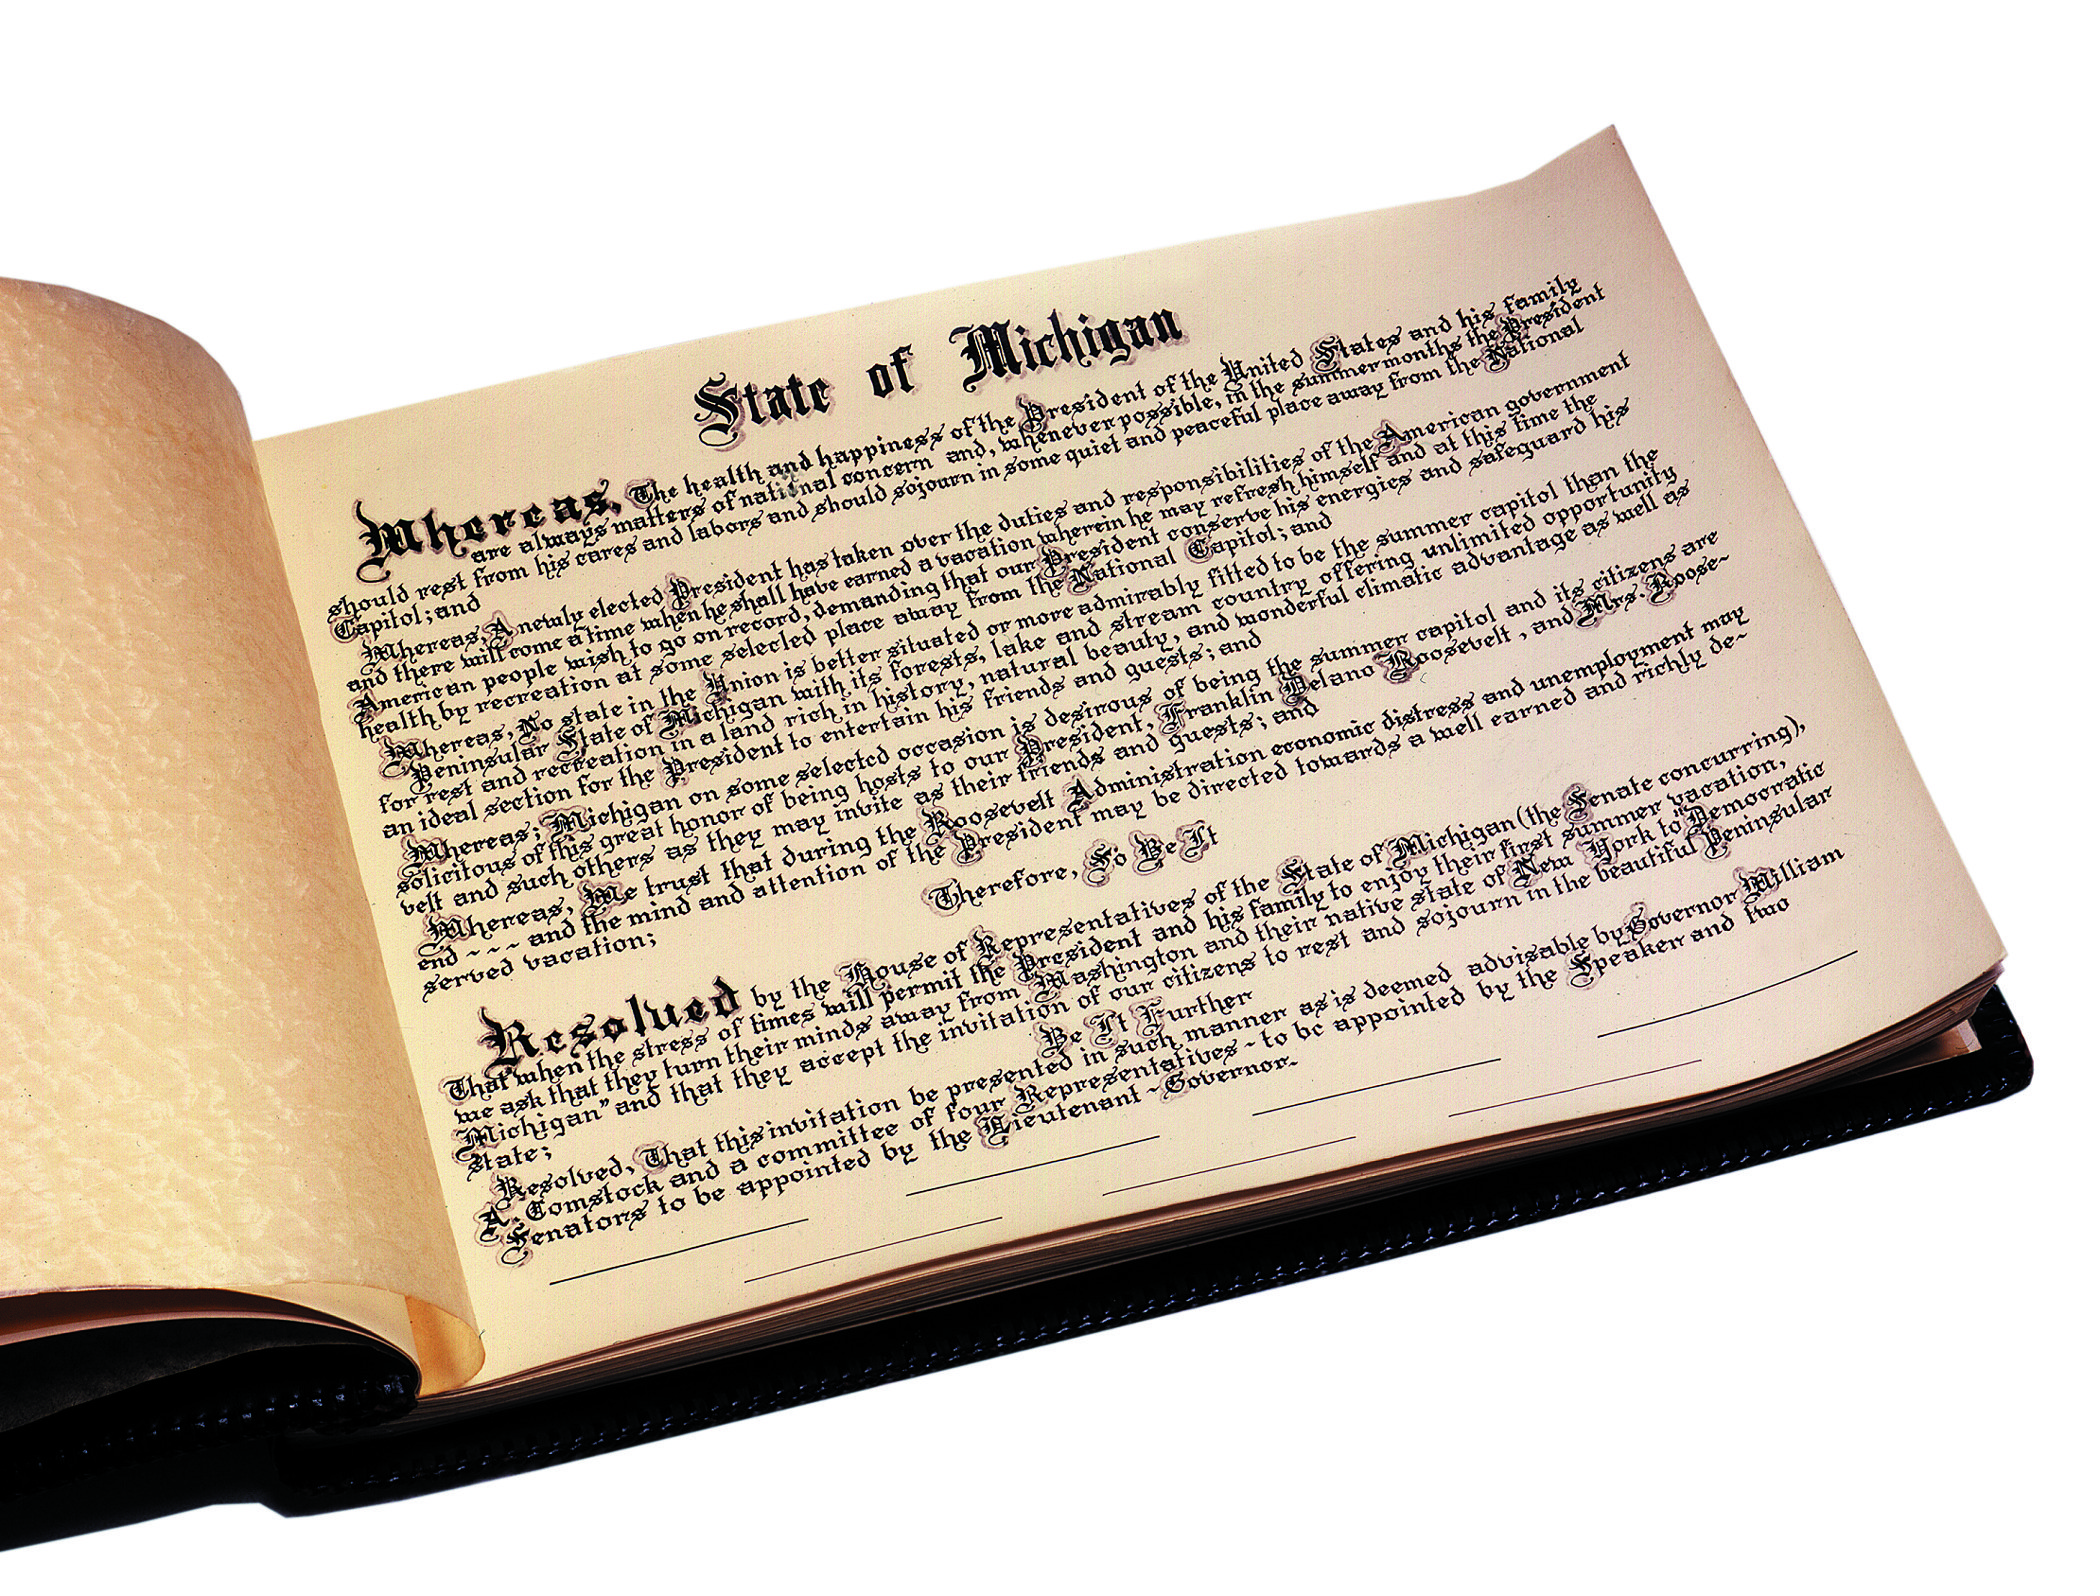 State of Michigan
Whereas, The health and happiness of the President of the United States and his family
are always matters of national concern and, whenever possible, in the summer months the President
should rest from his cares and labors and should sojourn in some quiet and peaceful place away from the National
Capitol; and
Whereas, A newly elected President has taken over the duties and responsibilities of the American government
and there will come a time when he shall have earned a vacation wherein he may refresh himself and at this time the
American people wish to go on record, demanding that our President conserve his energies and safeguard his
health by recreation at some selected place away from the National Capitol; and
Whereas, No state in the Union is better situated or more admirably fitted to be the summer capitol than the
Peninsular State of Michigan with its forests, lake and stream country offering unlimited opportunity
for rest and recreation in a land rich in history, natural beauty, and wonderful climatic advantage as well as
an ideal section for the President to entertain his friends and guests; and
Whereas; Michigan on some selected occasion is desirous of being the summer capitol and its citizens are
solicitous of this great honor of being hosts to our President, Franklin Delano Roosevelt, and Mrs. Roose-
velt and such others as they may invite as their friends and guests; and
Whereas, We trust that during the Roosevelt Administration economic distress and unemployment may
end - - - and the mind and attention of the President may be directed towards a well earned and richly de-
served vacation;
Therefore, So Be It
Resolved by the House of Representatives of the State of Michigan (the Senate concurring),
That when the stress of times will permit the President and his family to enjoy their first summer vacation,
we ask that they turn their minds away from Washington and their native state of New York to "Democratic
Michigan" and that they accept the invitation of our citizens to rest and sojourn in the beautiful Peninsular
State;
Be It Further
Resolved, That this invitation be presented in such manner as is deemed advisable by Governor William
A. Comstock and a committee of four Representatives - to be appointed by the Speaker and two
Senators to be appointed by the Lieutenant - Governor.-